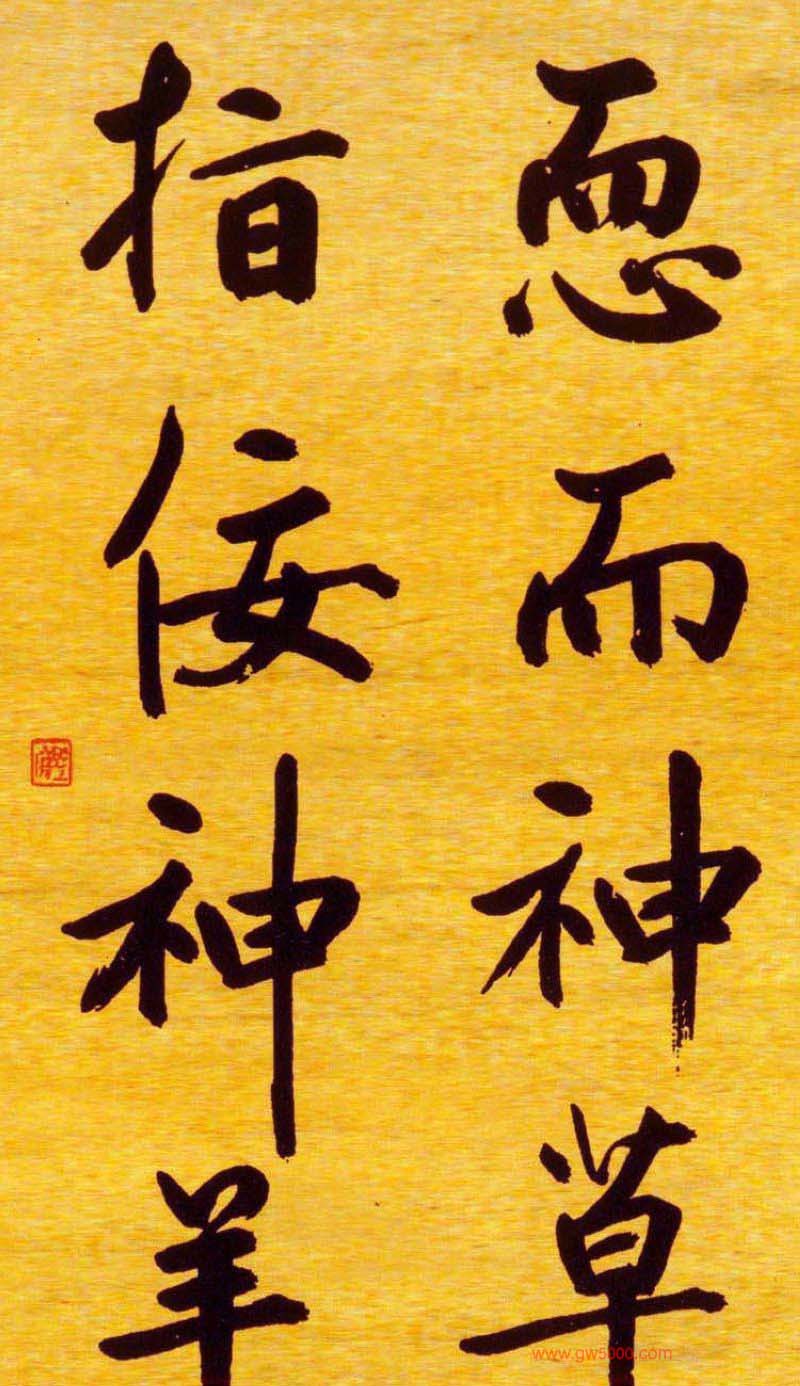 而神草
指佞神羊
www.gw5000.com